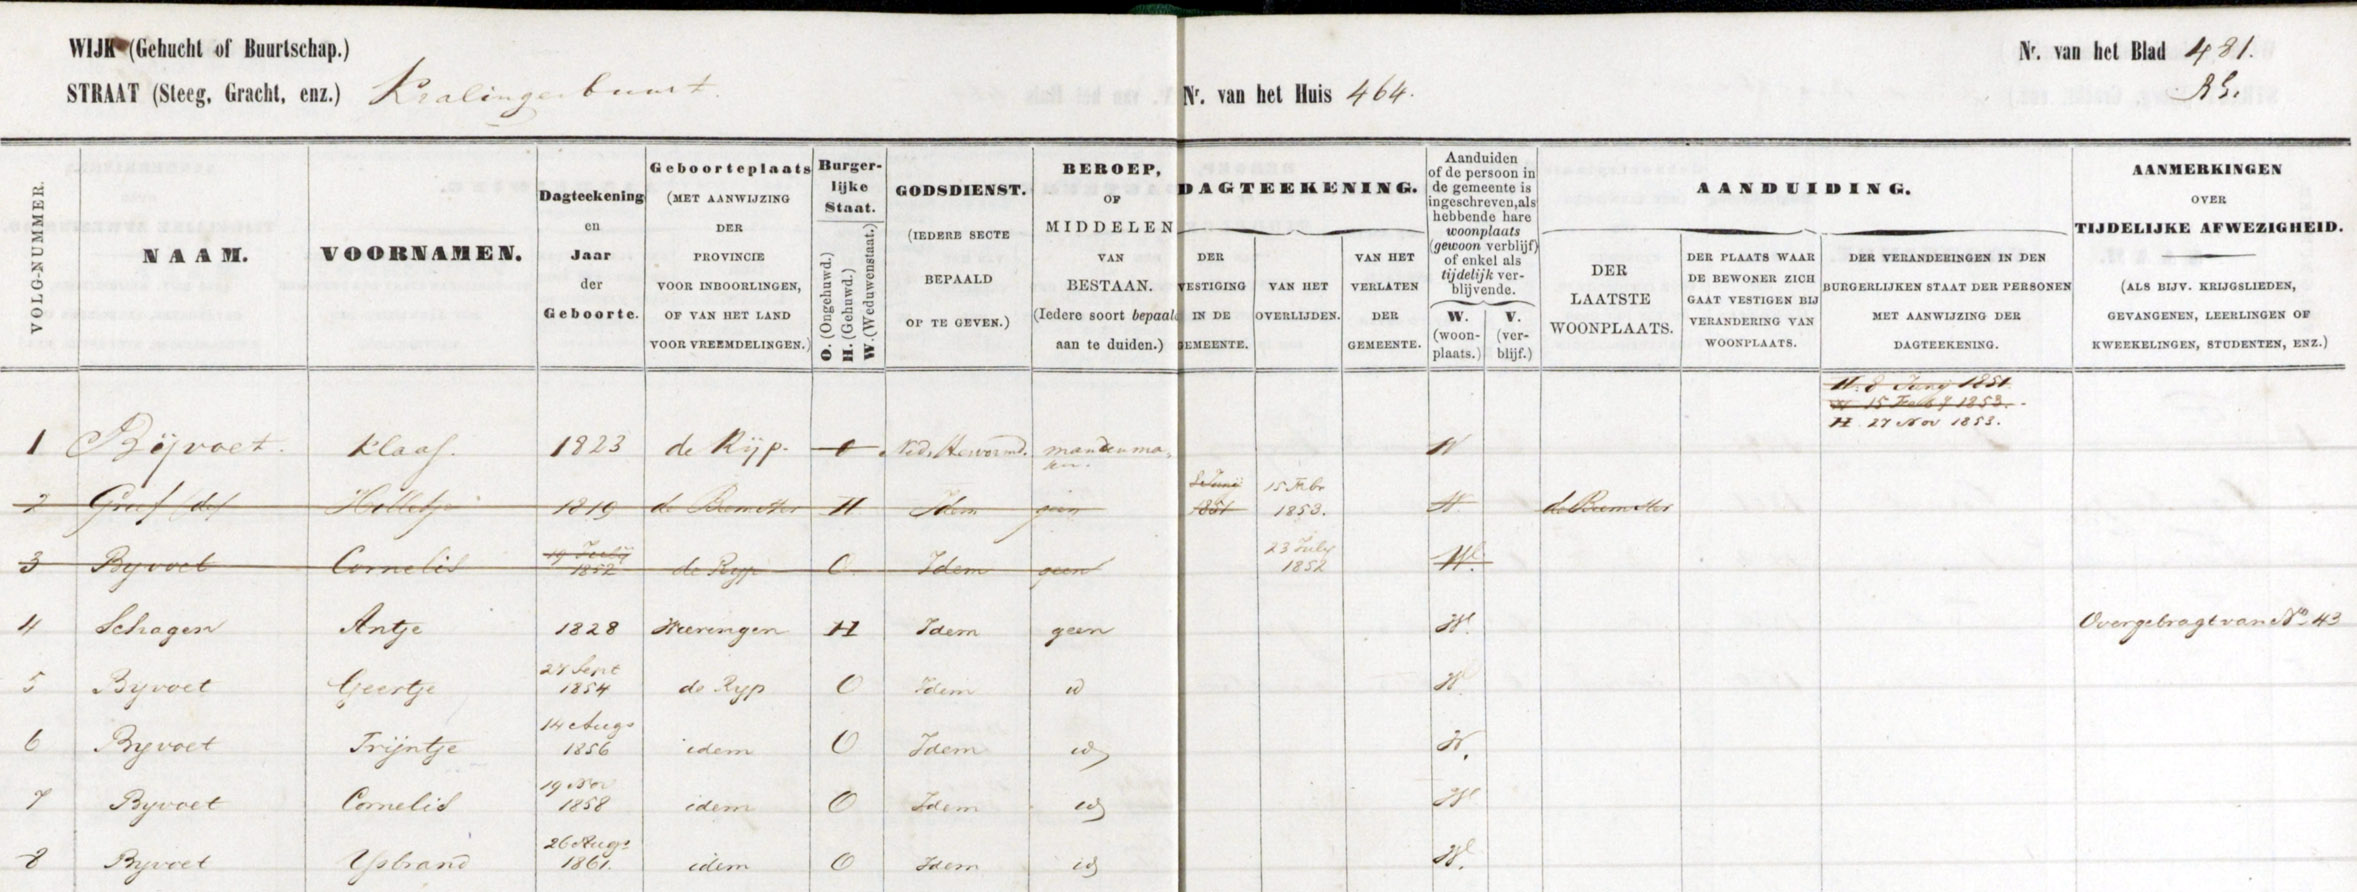 WIJK (Gehucht of Buurtschap.)
Nr. van het Blad 481.
STRAAT (Steeg, Gracht, enz.) Kralingerbuurt.
Nr. van het Huis 464.
VOLG-NUMMER.
NAAM.
VOORNAMEN.
Dagteekening
en
Jaar
der
Geboorte.
Geboorteplaats
(MET AANWIJZING
DER
PROVINCIE
VOOR INBOORLINGEN,
OF VAN HET LAND
VOOR VREEMDELINGEN.)
Burger-
lijke
Staat.
O. (Ongehuwd.)
H. (Gehuwd.)
W. (Weduwenstaat.)
GODSDIENST.
(IEDERE SECTE
BEPAALD
OP TE GEVEN.)
BEROEP,
OF
MIDDELEN
VAN
BESTAAN.
(Iedere soort bepaald
aan te duiden.)
DAGTEEKENING.
DER
VESTIGING
IN DE
GEMEENTE.
VAN HET
OVERLIJDEN.
VAN HET
VERLATEN
DER
GEMEENTE.
Aanduiden
of de persoon in
de gemeente is
ingeschreven, als
hebbende hare
woonplaats
(gewoon verblijf)
of enkel als
tijdelijk ver-
blijvende.
W.
(woon-
plaats.)
V.
(ver-
blijf.)
AANDUIDING.
DER
LAATSTE
WOONPLAATS.
DER PLAATS WAAR
DE BEWONER ZICH
GAAT VESTIGEN BIJ
VERANDERING VAN
WOONPLAATS.
DER VERANDERINGEN IN DEN
BURGERLIJKEN STAAT DER PERSONEN
MET AANWIJZING DER
DAGTEEKENING.
AANMERKINGEN
OVER
TIJDELIJKE AFWEZIGHEID.
(ALS BIJV. KRIJGSLIEDEN,
GEVANGENEN, LEERLINGEN OF
KWEEKELINGEN, STUDENTEN, ENZ.)
H. 8 Junij 1851
15 Feb 1853.
H 27 Nov 1853.
1 Bijvoet. Klaas. 1823 de Rijp. Ned. Hervormd. mandenma- W
ker.
2 Greef (de) Hilletje 1819 de Beemster H Idem geen 8 Junij 1851 15 Febr 1853. W de Beemster
3 Byvoet Cornelis 19 July 1852 de Ryp O. Idem geen 23 July 1852 W.
4 Schagen Antje 1828 Wieringen H Idem geen W. Overgebragt van No. 43
5 Byvoet Geertje 27 Sept 1854 de Ryp O Idem id W.
6 Byvoet Trijntje 14 Augs 1856 idem O Idem id W.
7 Byvoet Cornelis 19 Nov 1858 idem O Idem id W
8 Byvoet Ysbrand 26 Augs 1861. idem O Idem id W.